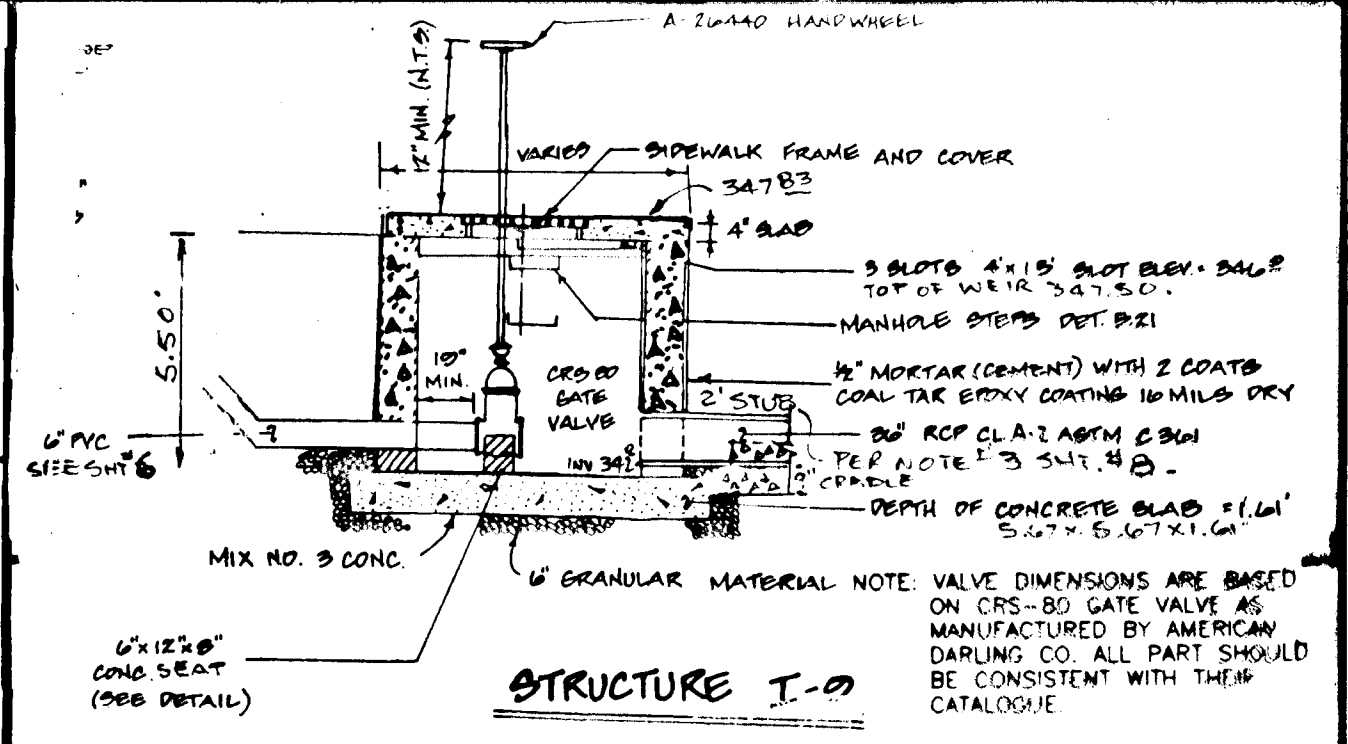 A-26440 HANDWHEEL
12" MIN. (N.T.S.)
VARIES
SIDEWALK FRAME AND COVER
347 83
4" SLAB
3 SLOTS 4'x13" SLOT ELEV. =
TOP OF WEIR 347.50.
MANHOLE STEPS DET. 5.21
5.50'
MIN.
CRS 80
GATE
VALVE
½" MORTAR (CEMENT) WITH 2 COATS
COAL TAR EPOXY COATING 16 MILS DRY
2' STUB
36" RCP CL. A-2 ASTM C 361
PER NOTE #3 SHT. #8.
CRADLE
6" PVC
SEE SHT #6
INV
DEPTH OF CONCRETE SLAB = 1.61'
5.67 x 5.67 x 1.61'
MIX NO. 3 CONC.
6" GRANULAR MATERIAL
NOTE: VALVE DIMENSIONS ARE BASED
ON CRS-80 GATE VALVE AS
MANUFACTURED BY AMERICAN
DARLING CO. ALL PART SHOULD
BE CONSISTENT WITH THEIR
CATALOGUE.
6"x12"x8"
CONC. SEAT
(SEE DETAIL)
STRUCTURE I-9